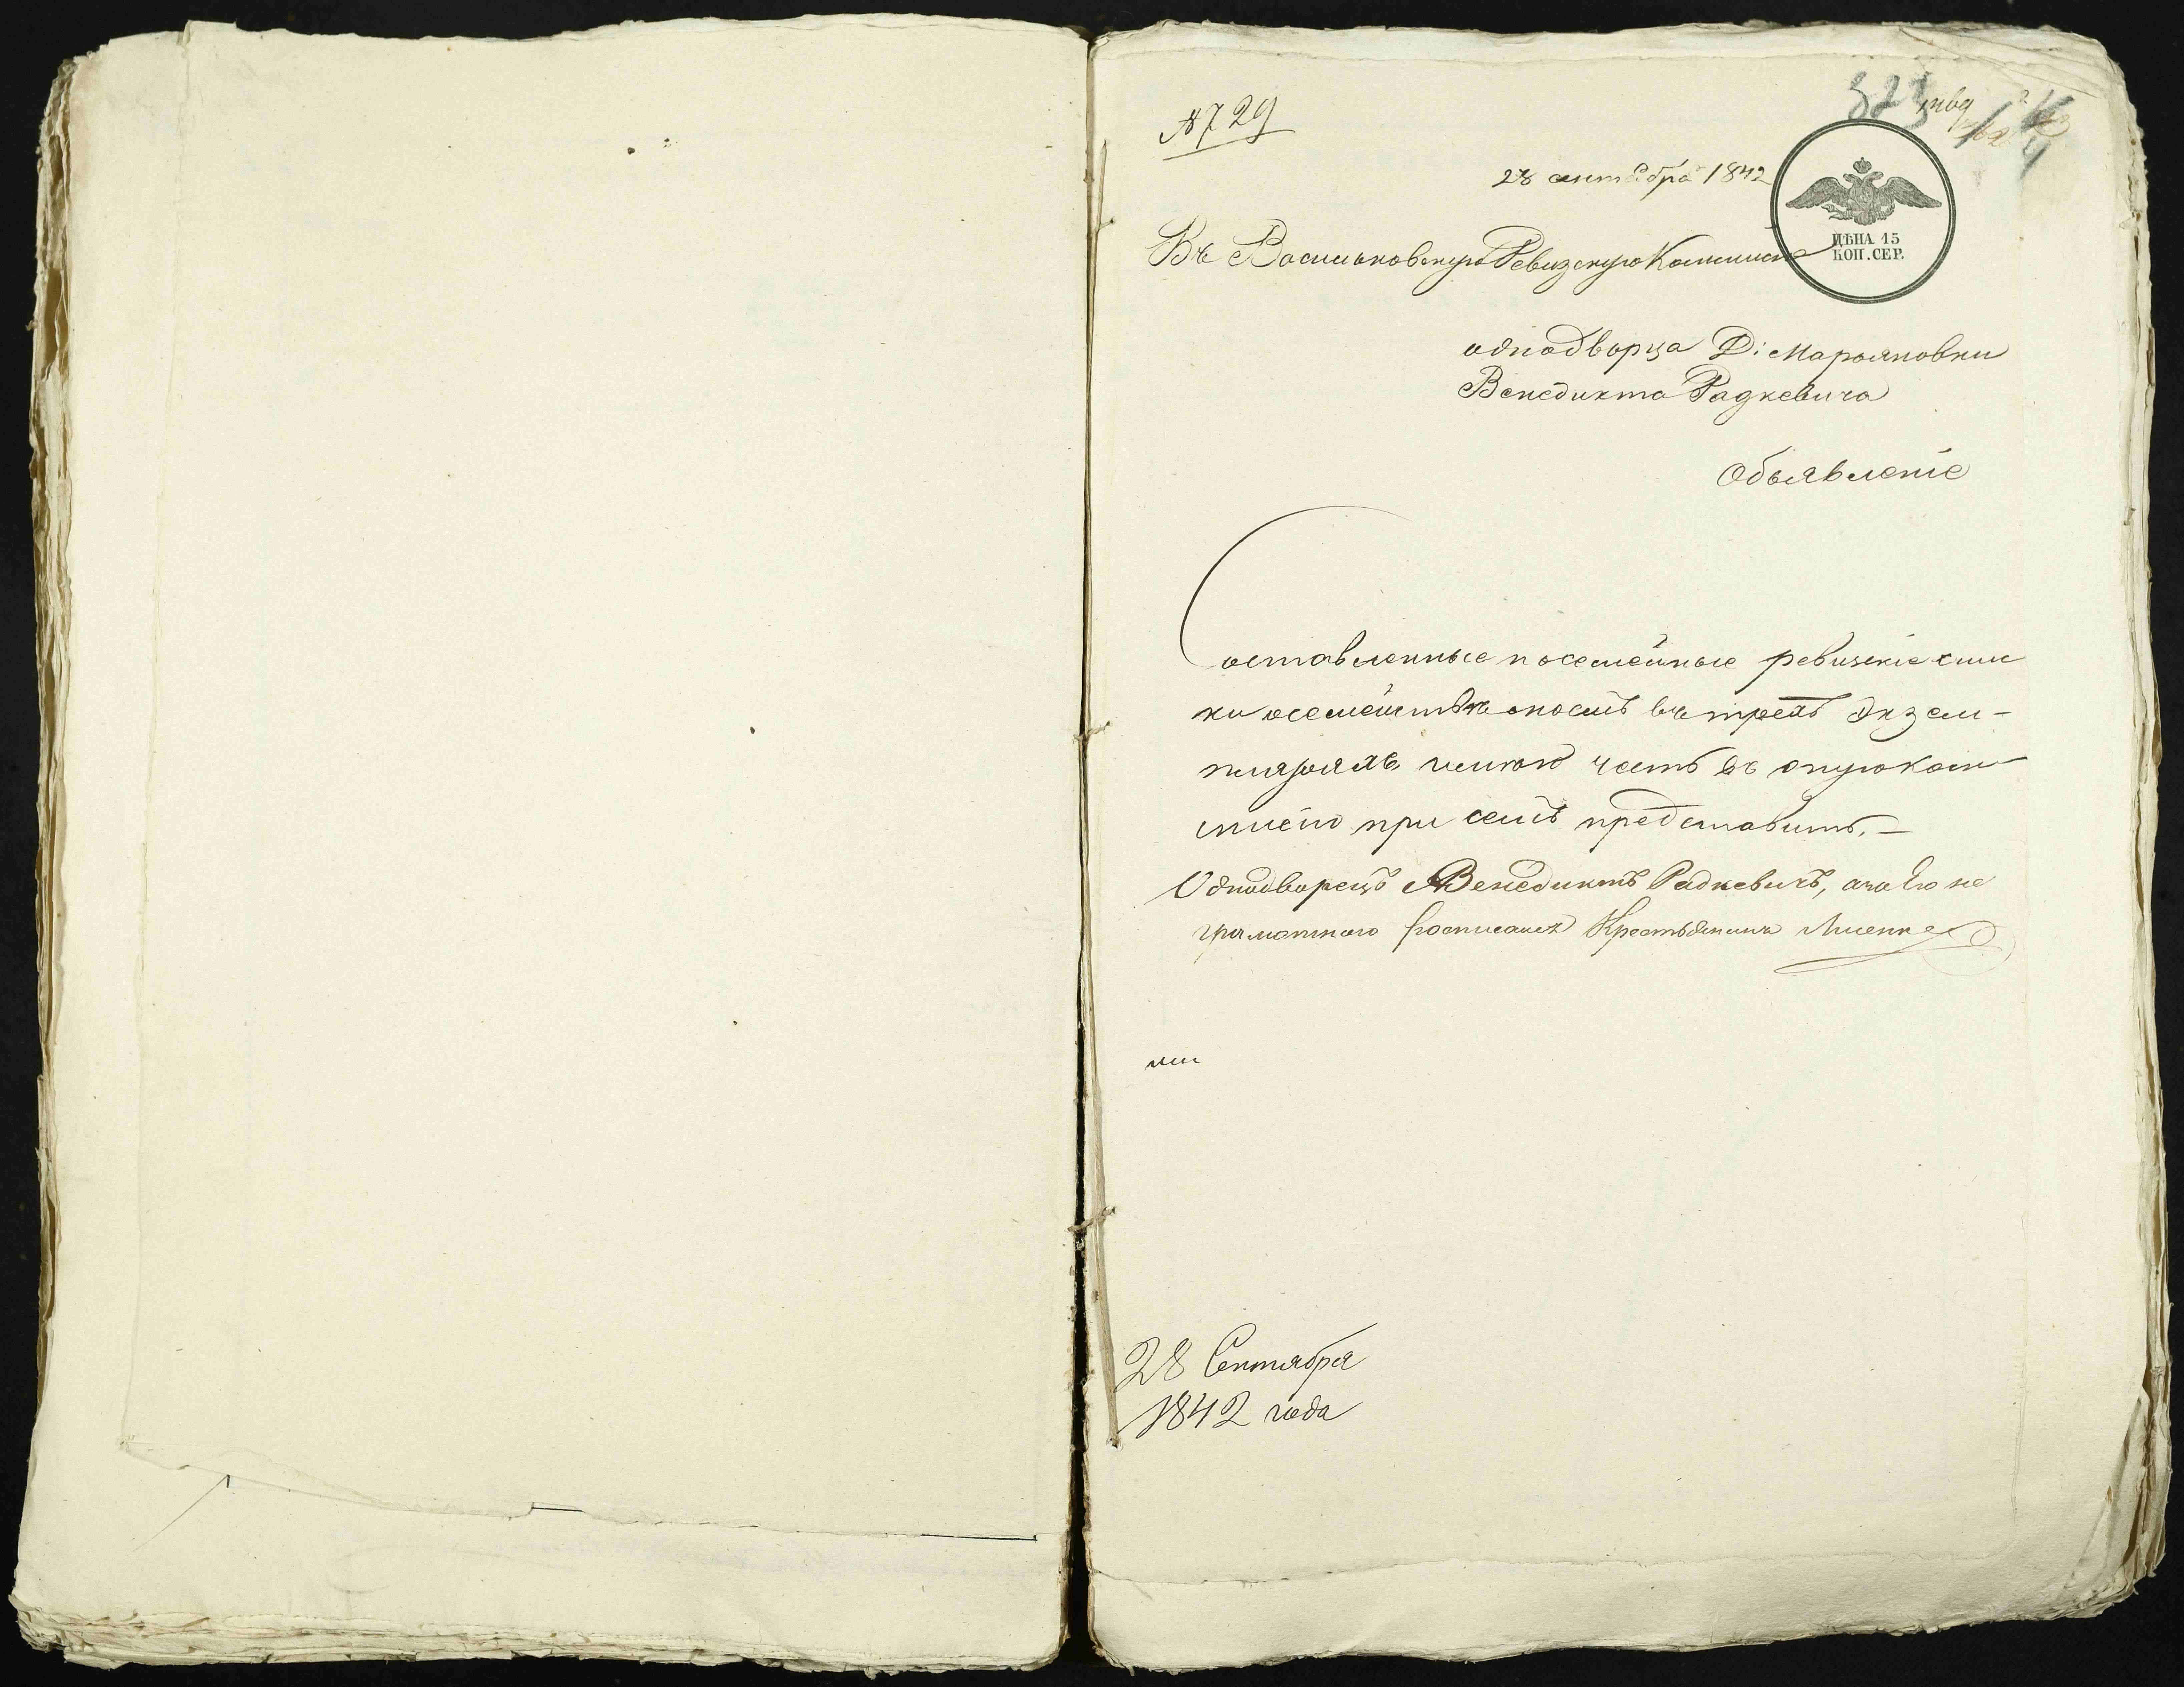 № 729
28 сентября 1842
ЦѢНА 15
КОП. СЕР.
Въ Васильковскую Ревизскую Комисию
однодворца Д: Марьяновки
Венедикта Радкевича
Объявленіе
Составленные посемейные ревизскіе спис
ки о семействѣ моемъ въ трехъ Экзем-
плярахъ имею честь въ оную Ком-
мисію при семъ представить. —
Однодворецъ Венедиктъ Радкевичъ, а за Его не
грамотного росписался Крестьянинъ
28 Сентября
1842 года